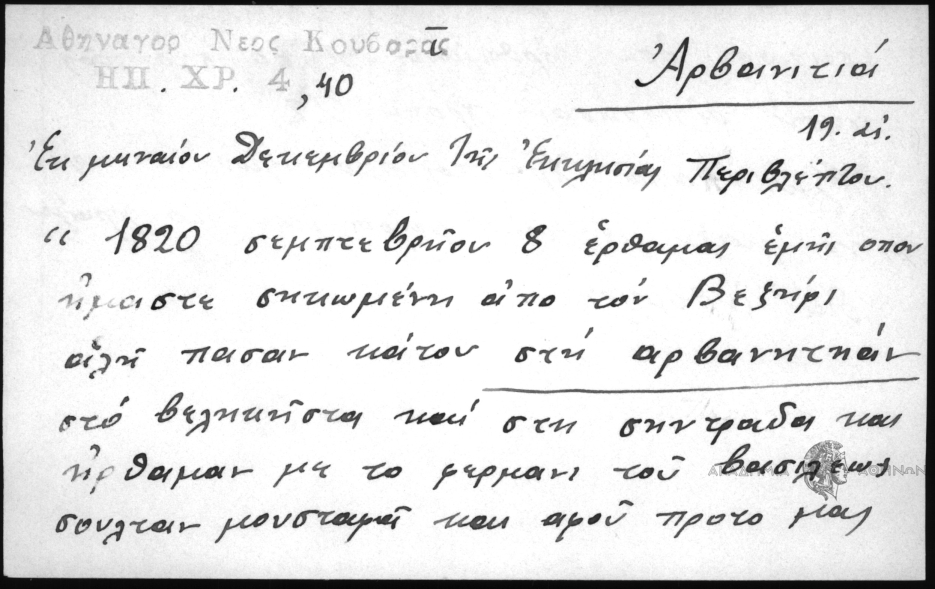 Ἀθηναγορ Νεος Κουβαρᾶς
ΗΠ. ΧΡ. 4, 40
Ἀρβανιτιά
19. αι.
Ἐκ μηναίου Δεκεμβρίου τῆς Ἐκκλησίας Περιβλέπτου.
“ 1820 σεμπτεβρῆου 8 ἐρθαμας ἐμῆς οπου
ἤμαστε σηκωμένη ἀπο τόν Βεζήρι
ἀλῆ πασαν κάτου στή αρβανητηάν
στό βεληκῆστα καί στη σηντραδα και
ἠρθαμαν με το φερμανι τοῦ βασιλεως
σουλταν μουσταφᾶ και αφοῦ προτο μας
ΑΚΑΔΗΜΙΑ ΑΘΗΝΩΝ